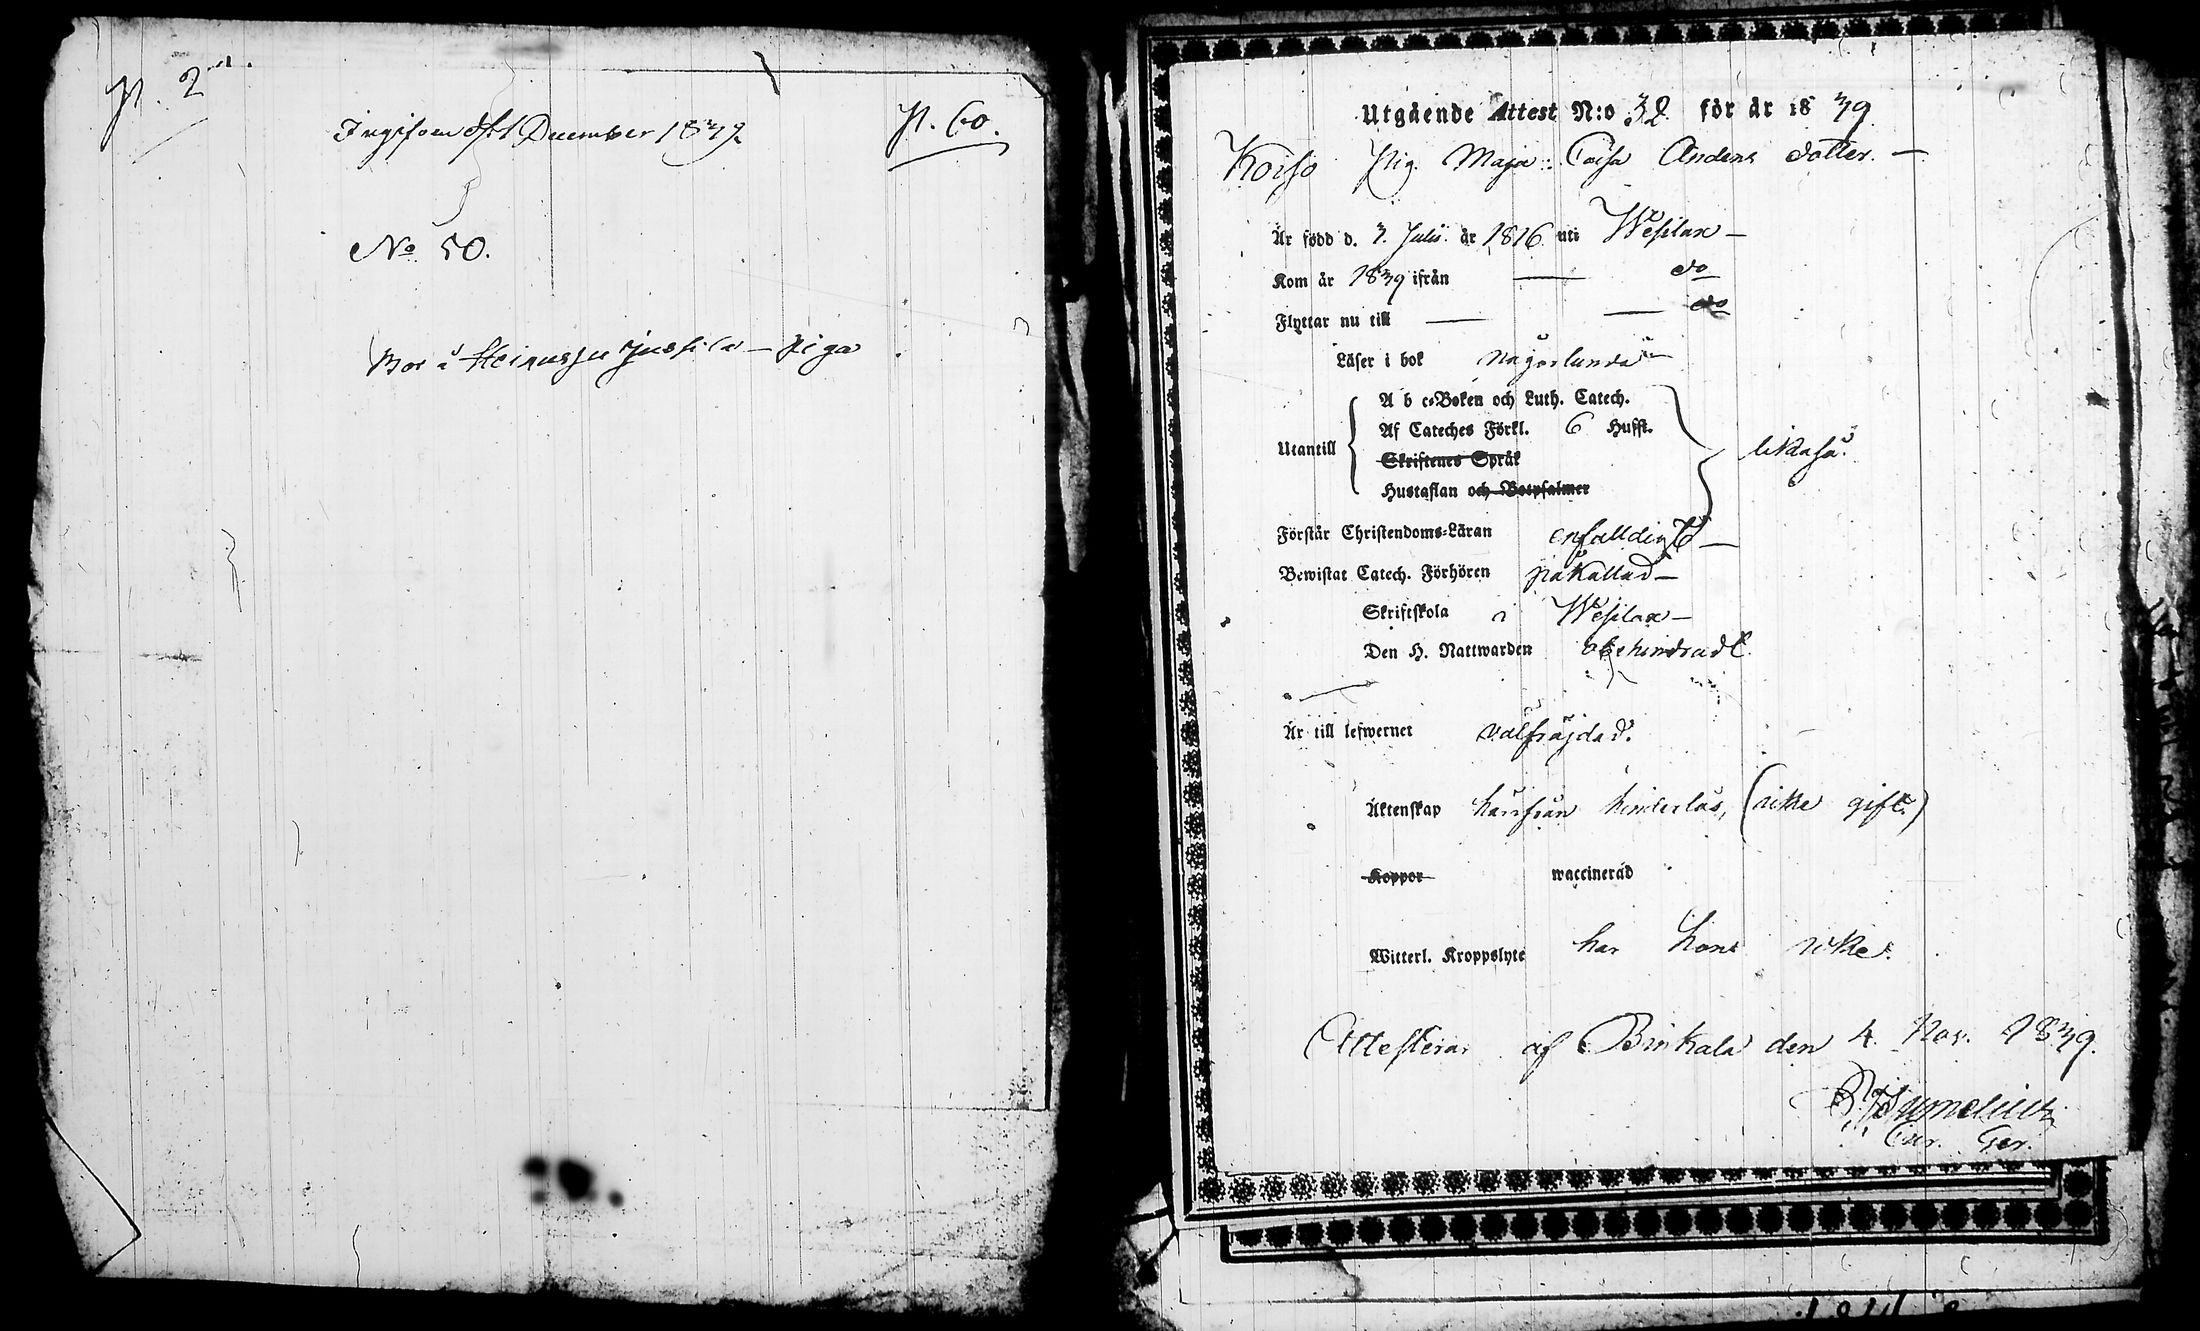 p. 2
Ingifven d. 1 December 1839.
p. 60.
No 50.
Bor i Heinusju Jussila — piga
Utgående Attest N:o 32 för år 1839
Koiso Pig. Maja Caisa Anders dotter. —
Är född d. 7. Julii. år 1816 uti Wesilax —
Kom år 1839 ifrån — do
Flyttar nu till — — do
Läser i bok någorlunda —
A b c-Boken och Luth. Catech.
Af Cateches Förkl. 6 Hufst.
Utantill
likaså.
Skriftenes Språk
Hustaflan och Botpsalmer
Förstår Christendoms-Läran enfalldigt —
Bewistat Catech. Förhören påkallad —
Skriftskola i Wesilax —
Den H. Nattwarden obehindradt.
Är till lefwernet välfräjdad.
Äktenskap härifrån hinderlös, (icke gift.)
Koppor waccinerad
Witterl. Kroppslyte har hon icke.
Attesterar af Brinkala den 4. Nov. 1839.